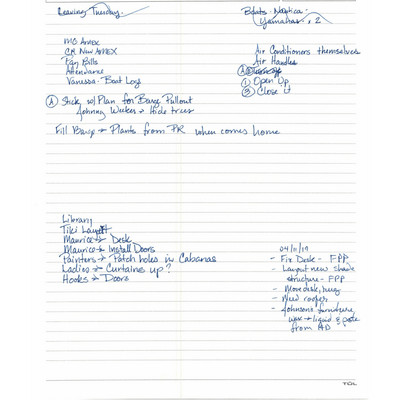 Leaving Tuesday -
MC Amex
CH New AMEX
Pay Bills
Attendance
Vanessa - Boat Logs
A Stick w/ Plan for Barge Pullout
Johnny Weeker → Hide trees
Fill Barge → Plants from PR when comes home
Boats - Nautica -
Yamahas, 2
Air Conditioners themselves
Air Handles
① Open Up
③ Close it
Library
Tiki Layout
Maurice → Desk
Maurice → Install Doors
Painters → Patch holes in Cabanas
Ladies → Curtains up?
Hooks → Doors
04/11/19
- Fix Desk - FPP
- Layout new shade
structure - FPP
- Move desk, rug
- Need roofer
- Johnsons furniture,
liquid & paste
from AD
TOL